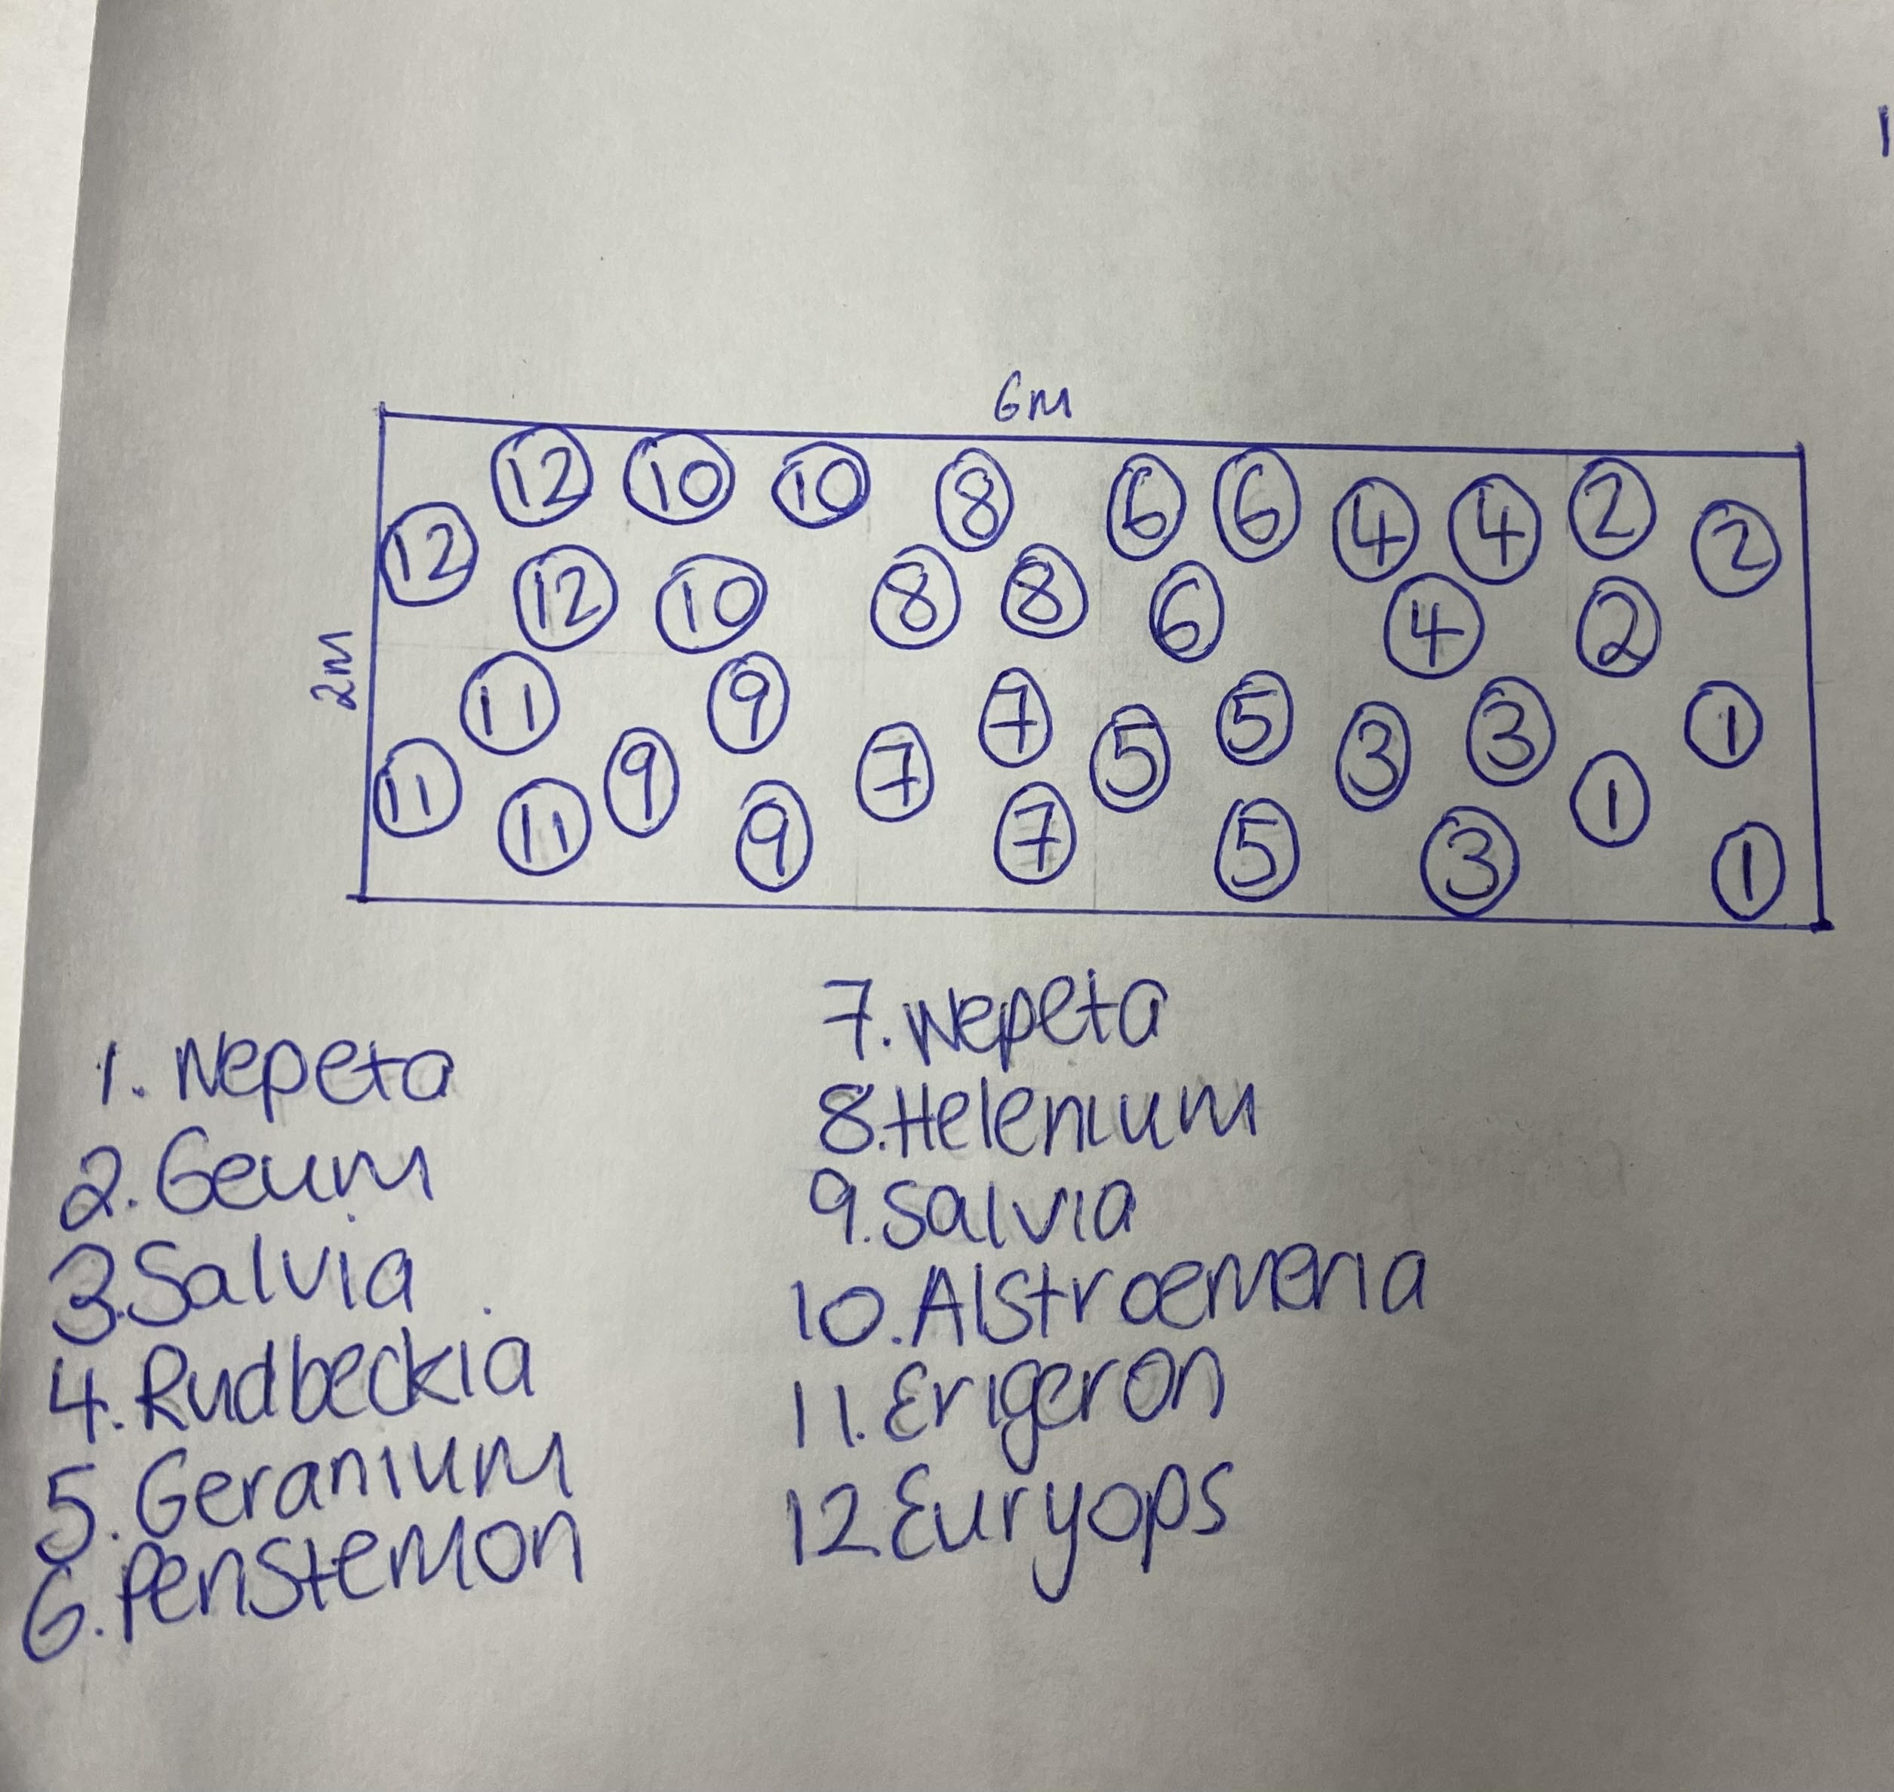 6M
12 10 10 8 6 6 4 4 2 2
12 12 10 8 8 6 4 2
2M
11 9 7 5 5 3 3 1
11 11 9 9 7 7 5 3 1 1
1. Nepeta
2. Geum
3. Salvia
4. Rudbeckia
5. Geranium
6. Penstemon
7. Nepeta
8. Helenium
9. Salvia
10. Alstroemeria
11. Erigeron
12. Euryops